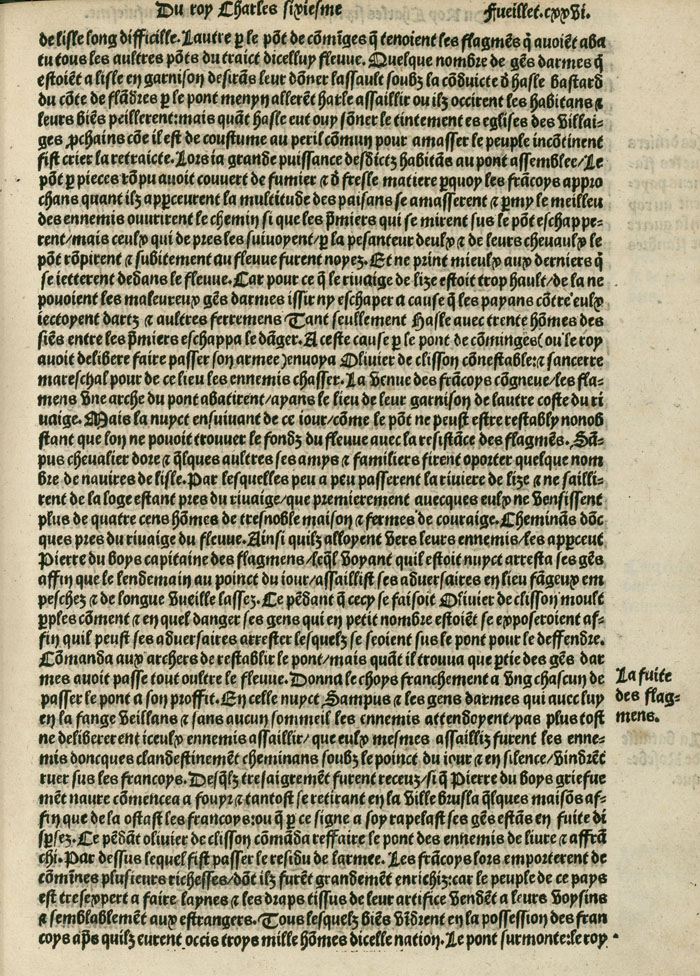 Du roy Charles sixiesme
Fueillet.cxxvi.
de lisle long difficille. Lautre ꝑ le põt de cõmĩges q̃ tenoient les flagmẽs q̃ auoiẽt aba
tu tous les aultres põts du traict dicelluy fleuue. Quelque nombre de gẽs darmes q̃
estoiẽt a lisle en garnison desirãs leur dõner lassault soubz la cõduicte d̃ hasle bastard
du cõte de flãdres ꝑ le pont menyn allerẽt harle assaillir ou ilz occirent les habitans ⁊
leurs biẽs peillerent: mais quãt hasle eut ouy sõner le tintement es eglises des villai-
ges ꝓchains cõe il est de coustume au peril cõmun pour amasser le peuple incõtinent
fist crier la retraicte. Lors ia grande puissance desdictz habitãs au pont assemblee/Le
põt ꝑ pieces rõpu auoit couuert de fumier ⁊ d̃ fresle matiere ꝑquoy les frãcoys appro
chans quant ilz apꝑceurent la multitude des paisans se amasserent ⁊ ꝑmy le meilleu
des ennemis ouurirent le chemin si que les p̃miers qui se mirent sus le põt eschappe-
rent/mais ceulx qui de pres les suiuoyent/ꝑ la pesanteur deulx ⁊ de leurs cheuaulx le
põt rõpirent ⁊ subitement au fleuue furent noyez. Et ne print mieulx aux derniers q̃
se ietterent dedans le fleuue. Car pour ce q̃ le riuaige de lize estoit trop hault/de la ne
pouoient les maleureux gẽs darmes issir ny eschaper a cause q̃ les payans cõtre eulx
iectoyent dartz ⁊ aultres ferremens Tant seullement Hasle auec trente hõmes des
siẽs entre les p̃miers eschappa le dãger. A ceste cause ꝑ le pont de cõminges(ou le roy
auoit delibere faire passer son armee)enuoya Oliuier de clisson cõnestable:⁊ sancerre
mareschal pour de ce lieu les ennemis chasser. La venue des frãcoys cõgneue/les fla-
mens vne arche du pont abatirent/ayans le lieu de leur garnison de lautre coste du ri
uaige. Mais la nuyct ensuiuant de ce iour/cõme le põt ne peust estre restably nonob
stant que lon ne pouoit trouuer le fondz du fleuue auec la resistãce des flagmẽs. Sã-
pus cheualier dore ⁊ q̃lques aultres ses amys ⁊ familiers firent oporter quelque nom
bre de nauires de lisle. Par lesquelles peu a peu passerent la riuiere de lize ⁊ ne sailli-
rent de la loge estant pres du riuaige/que premierement auecques eulx ne venssissent
plus de quatre cens hõmes de tresnoble maison ⁊ fermes de couraige. Cheminãs dõc
ques pres du riuaige du fleuue. Ainsi quilz alloyent vers leurs ennemis/les apꝑceut
Pierre du boys capitaine des flagmens/leq̃l voyant quil estoit nuyct arresta ses gẽs
affin que le lendemain au poinct du iour/assaillist ses aduersaires en lieu fãgeux em
peschez ⁊ de longue vueille lassez. Ce pẽdant q̃ cecy se faisoit Oliuier de clisson moult
ꝑples cõment ⁊ en quel danger ses gens qui en petit nombre estoiẽt se exposeroient af-
fin quil peust ses aduersaires arrester lesquelz se seoient sus le pont pour le deffendre.
Cõmanda aux archers de restablir le pont/mais quãt il trouua que ꝑtie des gẽs dar
mes auoit passe tout oultre le fleuue. Donna le choys franchement a vng chascun de
passer le pont a son proffit. En celle nuyct Sampus ⁊ les gens darmes qui auec luy
en la fange veillans ⁊ sans aucun sommeil les ennemis attendoyent/pas plus tost
ne delibererent iceulx ennemis assaillir/que eulx mesmes assailliz furent les enne-
mis doncques clandestinemẽt cheminans soubz le poinct du iour ⁊ en silence/vindrẽt
ruer sus les francoys. Desq̃lz tresaigremẽt furent receuz/si q̃ Pierre du boys griefue
mẽt naure cõmencea a fouyr ⁊ tantost se retirant en la ville brusla q̃lques maisõs af-
fin que de la ostast les francoys:ou q̃ ꝑ ce signe a soy rapelast ses gẽs estãs en fuite di
spersez. Ce pẽdãt oliuier de clisson cõmãda reffaire le pont des ennemis de liure ⁊ affrã
chi. Par dessus lequel fist passer le residu de larmee. Les frãcoys lors emporterent de
cõmĩnes plusieurs richesses/dõt ilz furẽt grandement enrichiz:car le peuple de ce pays
est tresexpert a faire laynes ⁊ les draps tissus de leur artifice vendẽt a leurs voysins
⁊ semblablemẽt aux estrangers. Tous lesquelz biẽs vĩdrent en la possession des fran
coys ap̃s quilz eurent occis troys mille hõmes dicelle nation. Le pont surmonte:le roy
La fuite
des flag-
mens.